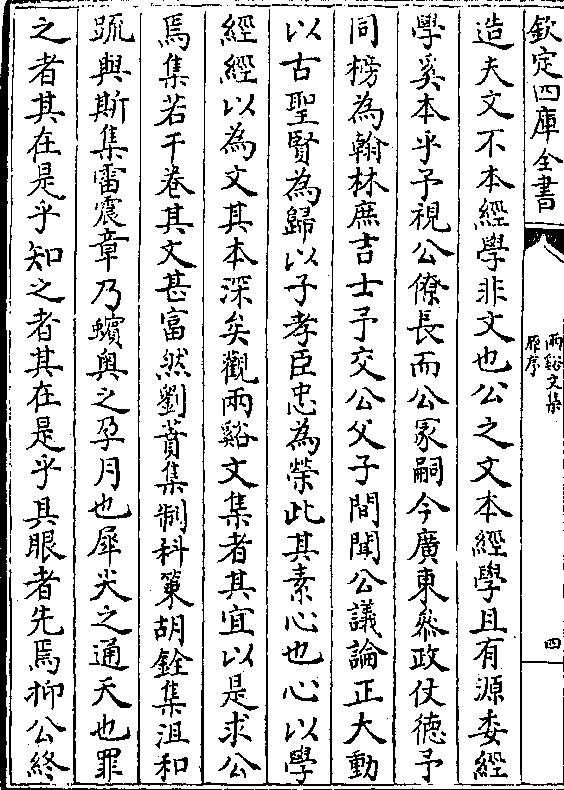 欽定四庫全書
兩谿文集
原序
四
造夫文不本經學非文也公之文本經學且有源委經
學奚本乎予視公僚長而公冢嗣今廣東叅政仗德予
同榜為翰林庶吉士予交公父子間聞公議論正大動
以古聖賢為歸以子孝臣忠為榮此其素心也心以學
經經以為文其本深矣觀兩谿文集者其宜以是求公
焉集若干卷其文甚富然劉蕡集制科策胡銓集沮和
䟽與斯集雷震章乃蠙輿之孕月也犀尖之通天也罪
之者其在是乎知之者其在是乎具眼者先焉抑公終